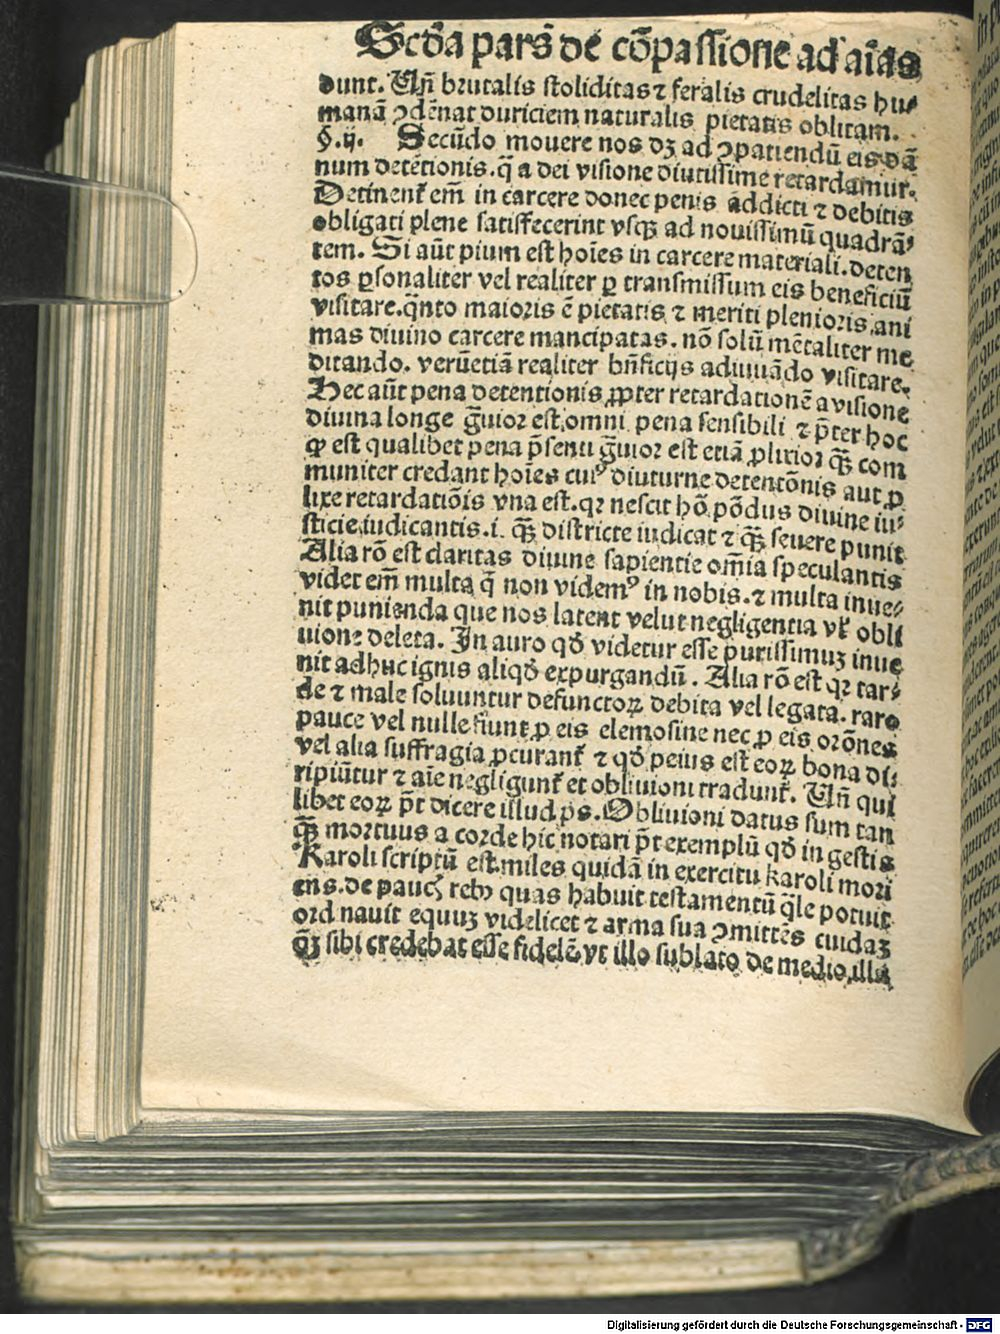 Scḋa pars de cōpassione ad aīas
dunt. Uñ brutalis stoliditas ⁊ feralis crudelitas hu⸗
manā ꝯdēnat duriciem naturalis pietatis oblitam.
§.ij. Secūdo mouere nos dꝫ ad ꝯpatiendū eis dā
num detētionis. q̄ a dei visione diutissime retardamur.
Detinent̄ em̄ in carcere donec penis addicti ⁊ debitis
obligati plene satisfecerint vsqꝫ ad nouissimū quadrā⸗
tem. Si aūt pium est hoīes in carcere materiali. deten
tos ꝑsonaliter vel realiter ꝑ transmissum eis beneficiū
visitare. q̄nto maioris ē pietatis ⁊ meriti plenioris, ani
mas diuino carcere mancipatas. nō solū mētaliter me
ditando. verūetiā realiter bn̄ficijs adiuuādo visitare.
Hec aūt pena detentionis ꝓpter retardationē a visione
diuina longe g̃uior est omni pena sensibili ⁊ p̄ter hoc
ꝙ est qualibet pena p̄senti g̃uior est etiā ꝓlixior qꝫ̄ com
muniter credant hoīes cuiꝰ diuturne detentōnis aut ꝓ
lixe retardatiōis vna est. qꝛ nescit hō pōdus diuine iu⸗
sticie iudicantis. i. qꝫ̄ districte iudicat ⁊ qꝫ̄ seuere punit
Alia rō est claritas diuine sapientie om̄ia speculantis
videt em̄ multa q̄ non videmꝰ in nobis. ⁊ multa inue⸗
nit punienda que nos latent velut negligentia vl̄ obli
uione deleta. In auro qḋ videtur esse purissimuꝫ inue
nit adhuc ignis aliqḋ expurgandū. Alia rō est qꝛ tar⸗
de ⁊ male soluuntur defunctoꝝ debita vel legata. raro
pauce vel nulle fiunt ꝓ eis elemosine nec ꝓ eis orōnes
vel alia suffragia ꝓcurant̄ ⁊ qḋ peius est eoꝝ bona di⸗
ripiūtur ⁊ aīe negligunt̄ et obliuioni tradunt̄. Uñ qui
libet eoꝝ p̄t dicere illud ps. Obliuioni datus sum tan
qꝫ̄ mortuus a corde hic notari p̄t exemplū qḋ in gestis
Karoli scriptū est. miles quidā in exercitu karoli mori
ens. de paucꝭ rebꝰ quas habuit testamentū q̄le potuit
ordnauit equuꝫ videlicet ⁊ arma sua ꝯmittēs cuidaꝫ
quē sibi credebat esse fidelē. vt illo sublato de medio, illa
Digitalisierung gefördert durch die Deutsche Forschungsgemeinschaft - DFG